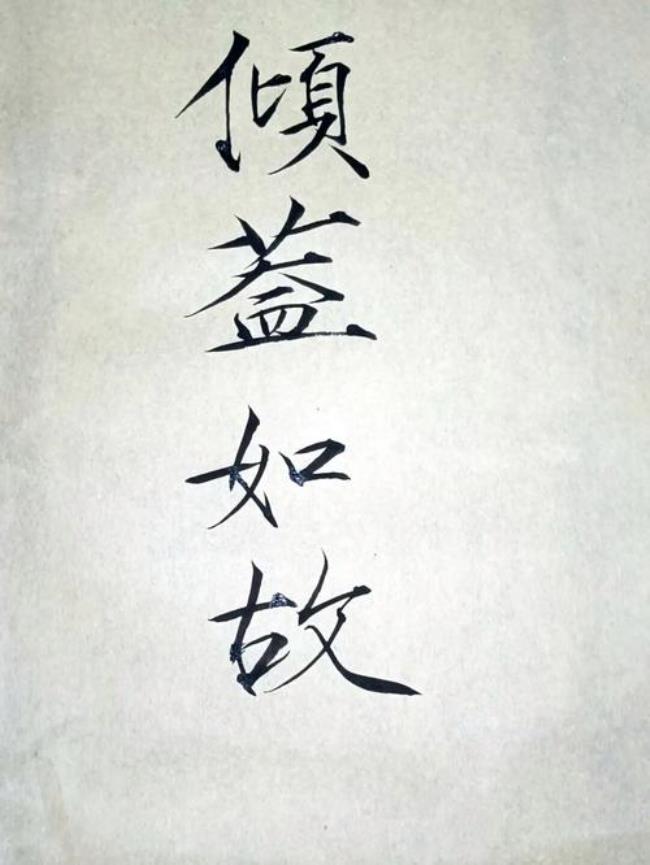 傾蓋如故